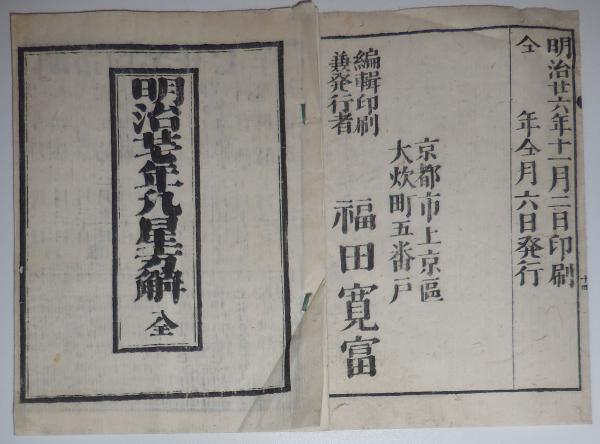 明治廿六年十一月二日印刷
仝 年仝月六日発行
京都市上京區
大炊町五番戸
編輯印刷
兼発行者
福田寛富
明治廿七年九星方解 全